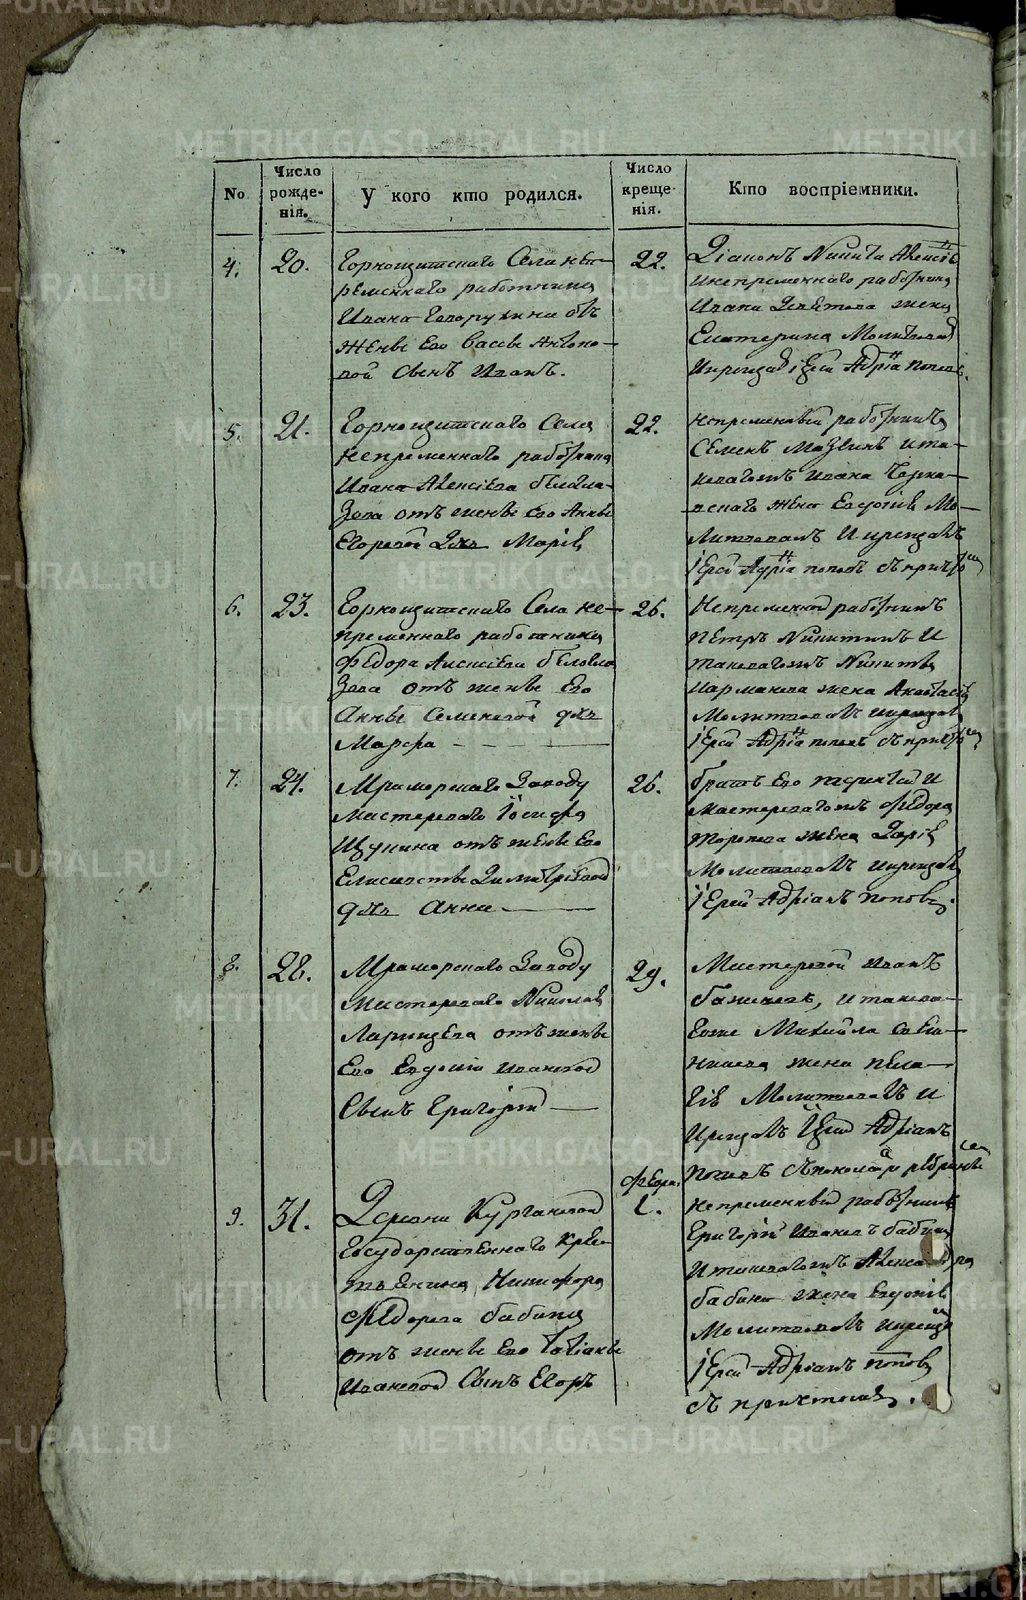 METRIKI.GASO-URAL.RU
No
Число рожде-нія.
У кого кто родился.
Число креще-нія.
Кто воспріемники.
4.
20.
Горнощитскаго Села неп-
ременнаго работника
Ивана отъ
жены Его Антоно-
вой Сынъ Иванъ.
22.
Діаконъ Никита
инепременнаго работника
Ивана жена
Екатерина Молитвовал
Икрещал іерей Адріанъ Поповъ.
5.
21.
Горнощитскаго Села
непременнаго работника
Ивана Алексіева белогла-
зова отъ жены Его Анны
Егоровой Дхь Марія
22.
непременный работникъ
Семенъ ита-
коваго жъ Ивана
жена Евдокія Мо-
литвовалъ И крещалъ
іерей Адріа попов съ причто
6.
23.
Горнощитскаго Села не-
пременнаго работника
Федора Алексіева белогла
зова отъ жены Его
Анны Семеновой дхь
Марфа
26.
Непременной работникъ
Петръ Никитинъ И
таковаго жъ Никиты
жена Анастасія
Молитвовалъ икрещалъ
іерей Адріа попов съ причто
7.
24.
Мраморскаго Заводу
мастероваго Іосифа
Щукина отъ жены Его
Елисаветы Димитріевой
дхь Анна
26.
братъ Его И
мастероваго жъ Федора
жена Дарія
Молитвовалъ икрещалъ
іерей Адріанъ Поповъ.
8.
28.
Мраморскаго Заводу
мастероваго Николая
отъ жены
Его Евдокіи Ивановой
Сынъ Григорій
29.
Мастеровой Иванъ
иакова-
гоже Михайла
жена Пела-
гія Молитвовалъ И
крещалъ Іерей Адріанъ
Поповъ
9.
31.
Деревни Кургановой
Государственнаго крес-
тьянина Никифора
Федорова бабина
отъ жены Его Татіаны
Ивановой Сынъ Егоръ
февр.
1.
непременный работникъ
Григорій Ивановъ бабинъ
Итаковаго жъ Александра
бабина жена Евдокія
Молитвовалъ икрещал
іерей Адріанъ Попов
съ причтомъ.